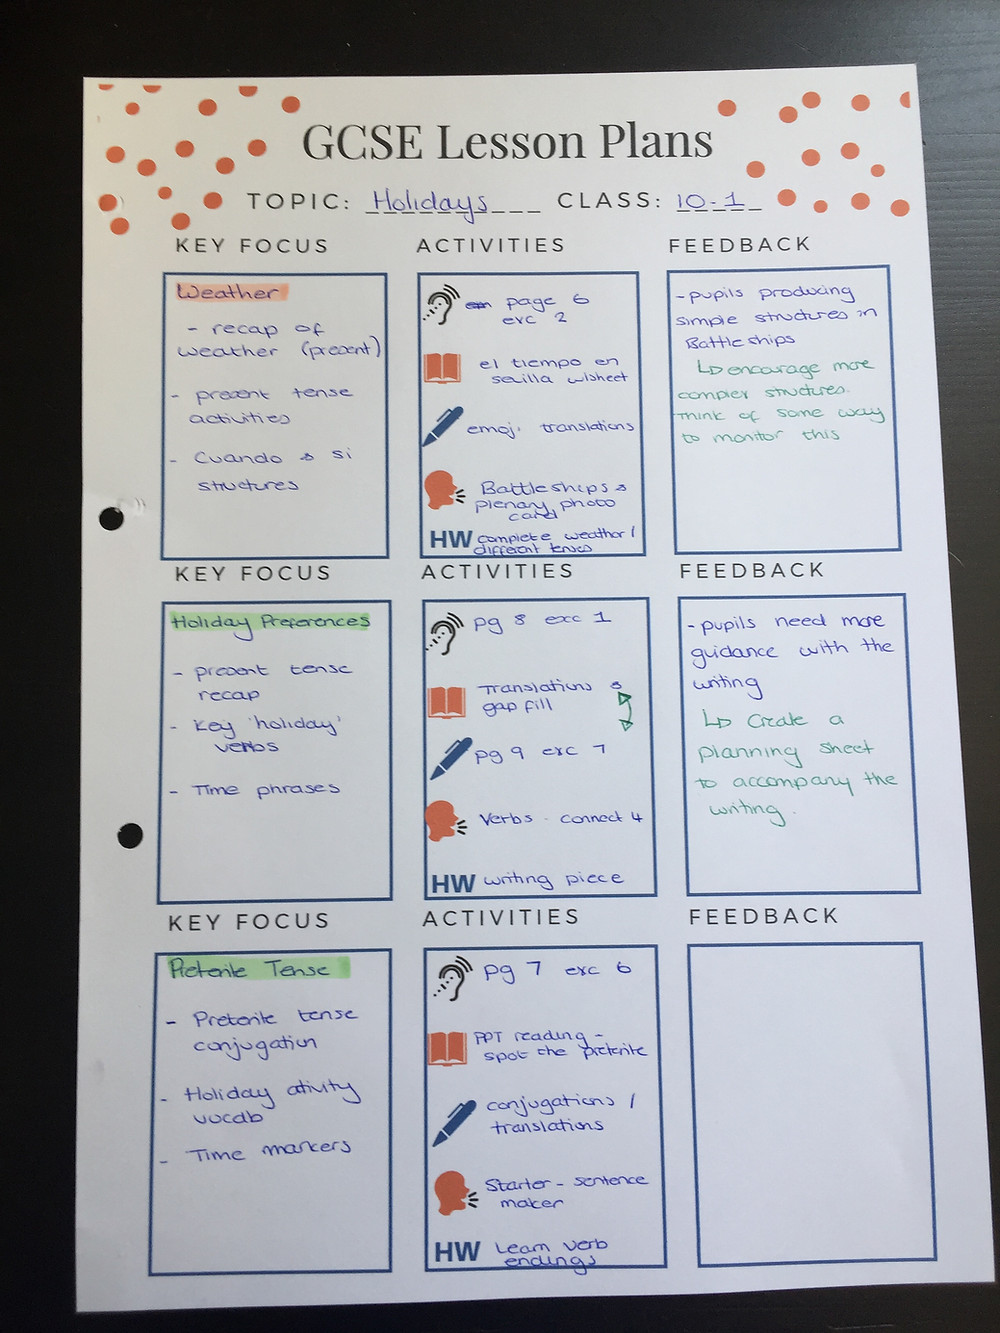 GCSE Lesson Plans
TOPIC: Holidays CLASS: 10-1
KEY FOCUS
Weather
- recap of
weather (present)
- present tense
activities
- Cuando & si
structures
ACTIVITIES
page 6
exc 2
el tiempo en
sevilla w/sheet
emoji translations
Battleships &
plenary photo
card
HW complete weather /
different tenses
FEEDBACK
- pupils producing
simple structures in
Battleships
↳ encourage more
complex structures.
Think of some way
to monitor this
KEY FOCUS
Holiday Preferences
- present tense
recap
- Key 'holiday'
verbs
- Time phrases
ACTIVITIES
pg 8 exc 1
Translations &
gap fill
pg 9 exc 7
Verbs - connect 4
HW writing piece
FEEDBACK
- pupils need more
guidance with the
writing
↳ Create a
planning sheet
to accompany the
writing.
KEY FOCUS
Preterite Tense
- Preterite tense
conjugation
- Holiday ativity
vocab
- Time markers
ACTIVITIES
pg 7 exc 6
PPT reading -
spot the preterite
conjugations /
translations
Starter - sentence
maker
HW Learn verb
endings
FEEDBACK